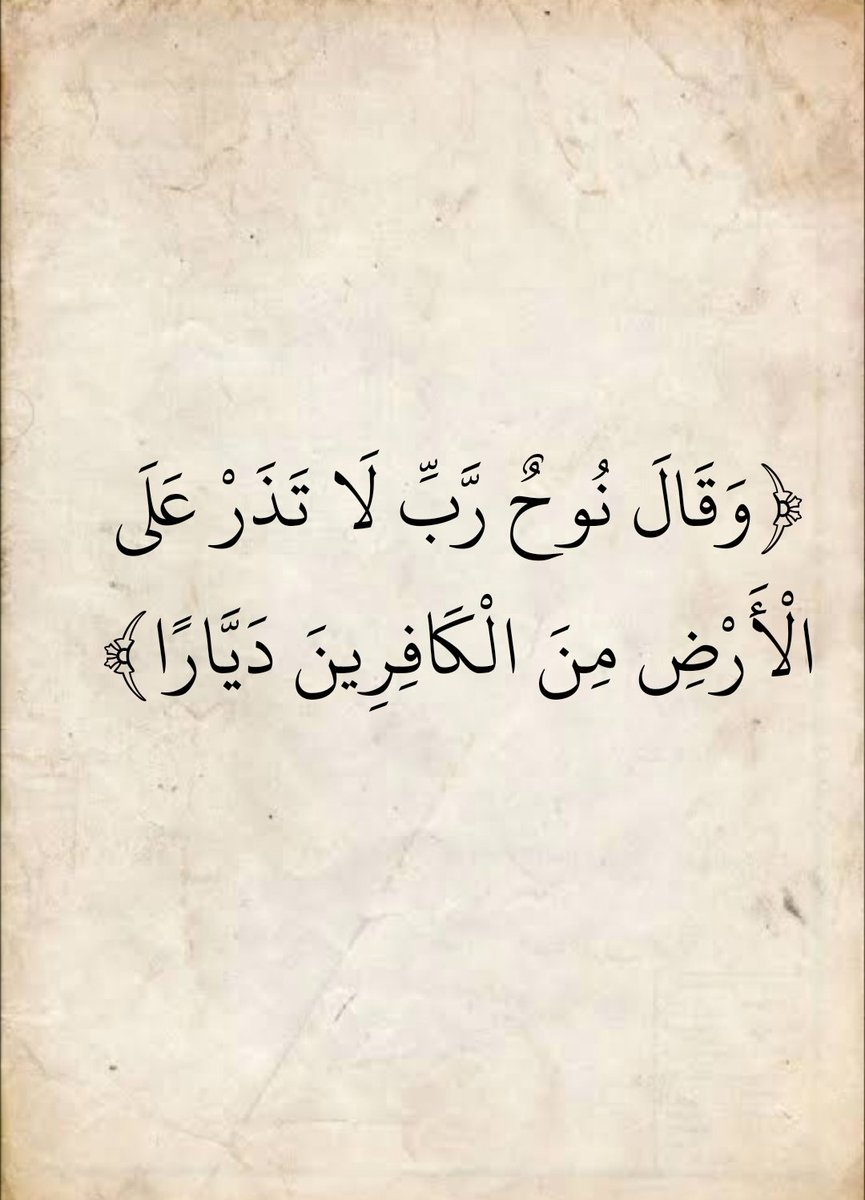 ﴿وَقَالَ نُوحٌ رَّبِّ لَا تَذَرْ عَلَى
الْأَرْضِ مِنَ الْكَافِرِينَ دَيَّارًا﴾